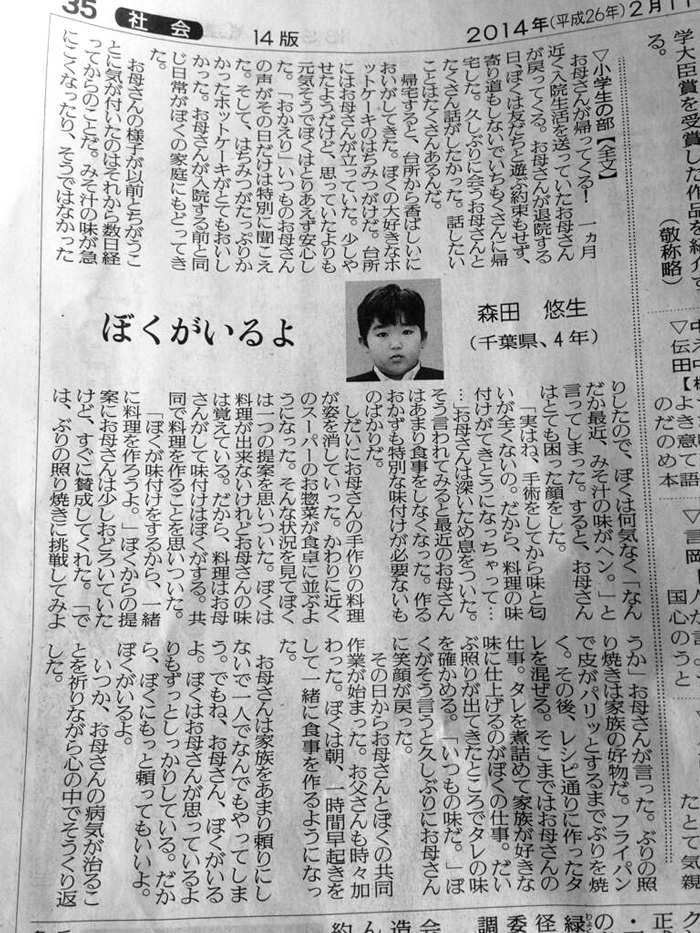 35 社会 14版 2014年(平成26年)2月1
学大臣賞を受賞した作品を紹介す
る。
（敬称略）
▽小学生の部【全文】
お母さんが帰ってくる！　一ヵ月
近く入院生活を送っていたお母さん
が戻ってくる。お母さんが退院する
日、ぼくは友だちと遊ぶ約束もせず、
寄り道もしないでいちもくさんに帰
宅した。久しぶりに会うお母さんと
たくさん話がしたかった。話したい
ことはたくさんあるんだ。
帰宅すると、台所から香ばしいに
おいがしてきた。ぼくの大好きなホ
ットケーキのはちみつがけだ。台所
にはお母さんが立っていた。少しや
せたようだけど、思っていたよりも
元気そうでぼくはとりあえず安心し
た。「おかえり」いつものお母さん
の声がその日だけは特別に聞こえ
た。そして、はちみつがたっぷりか
かったホットケーキがとてもおいし
かった。お母さんが入院する前と同
じ日常がぼくの家庭にもどってき
た。
お母さんの様子が以前とちがうこ
とに気が付いたのはそれから数日経
ってからのことだ。みそ汁の味が急
にこくなったり、そうではなかった
森田　悠生
（千葉県、4年）
ぼくがいるよ
りしたので、ぼくは何気なく「なん
だか最近、みそ汁の味がヘン。」と
言ってしまった。すると、お母さん
はとても困った顔をした。
「実はね、手術をしてから味と匂
いが全くないの。だから、料理の味
付けがてきとうになっちゃって…
…」お母さんは深いため息をついた。
そう言われてみると最近のお母さん
はあまり食事をしなくなった。作る
おかずも特別な味付けが必要ないも
のばかりだ。
しだいにお母さんの手作りの料理
が姿を消していった。かわりに近く
のスーパーのお惣菜が食卓に並ぶよ
うになった。そんな状況を見てぼく
は一つの提案を思いついた。ぼくは
料理が出来ないけれどお母さんの味
は覚えている。だから、料理はお母
さんがして味付けはぼくがする。共
同で料理を作ることを思いついた。
「ぼくが味付けをするから、一緒
に料理を作ろうよ。」ぼくからの提
案にお母さんは少しおどろいていた
けど、すぐに賛成してくれた。「で
は、ぶりの照り焼きに挑戦してみよ
うか」お母さんが言った。ぶりの照
り焼きは家族の好物だ。フライパン
で皮がパリッとするまでぶりを焼
く。その後、レシピ通りに作ったタ
レを混ぜる。そこまではお母さんの
仕事。タレを煮詰めて家族が好きな
味に仕上げるのがぼくの仕事。だい
ぶ照りが出てきたところでタレの味
を確かめる。「いつもの味だ。」ぼ
くがそう言うと久しぶりにお母さん
に笑顔が戻った。
その日からお母さんとぼくの共同
作業が始まった。お父さんも時々加
わった。ぼくは朝、一時間早起きを
して一緒に食事を作るようになっ
た。
お母さんは家族をあまり頼りにし
ないで一人でなんでもやってしま
う。でもね、お母さん、ぼくがいる
よ。ぼくはお母さんが思っているよ
りもずっとしっかりしている。だか
ら、ぼくにもっと頼ってもいいよ。
ぼくがいるよ。
いつか、お母さんの病気が治るこ
とを祈りながら心の中でそうくり返
した。